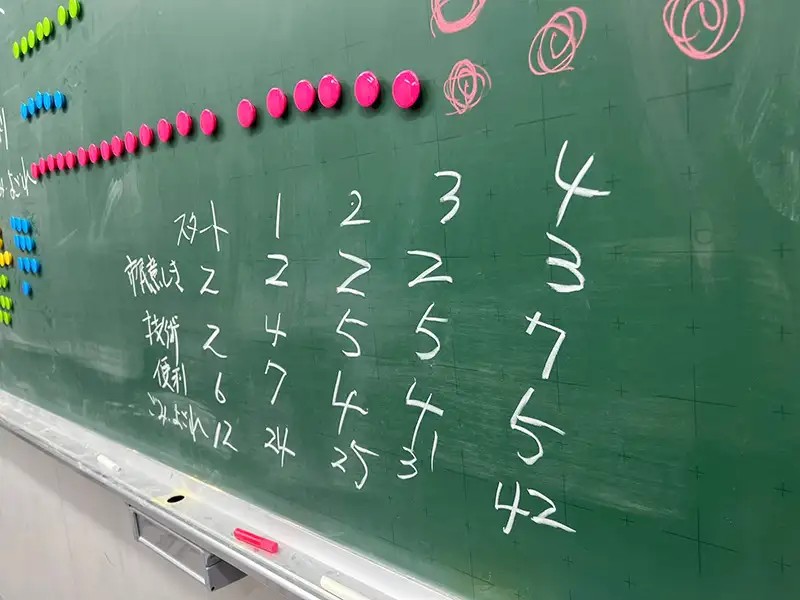 スタート 1 2 3 4
意しき 2 2 2 2 3
技術 2 4 5 5 7
便利 6 7 4 4 5
ごみよごれ 12 24 25 31 42